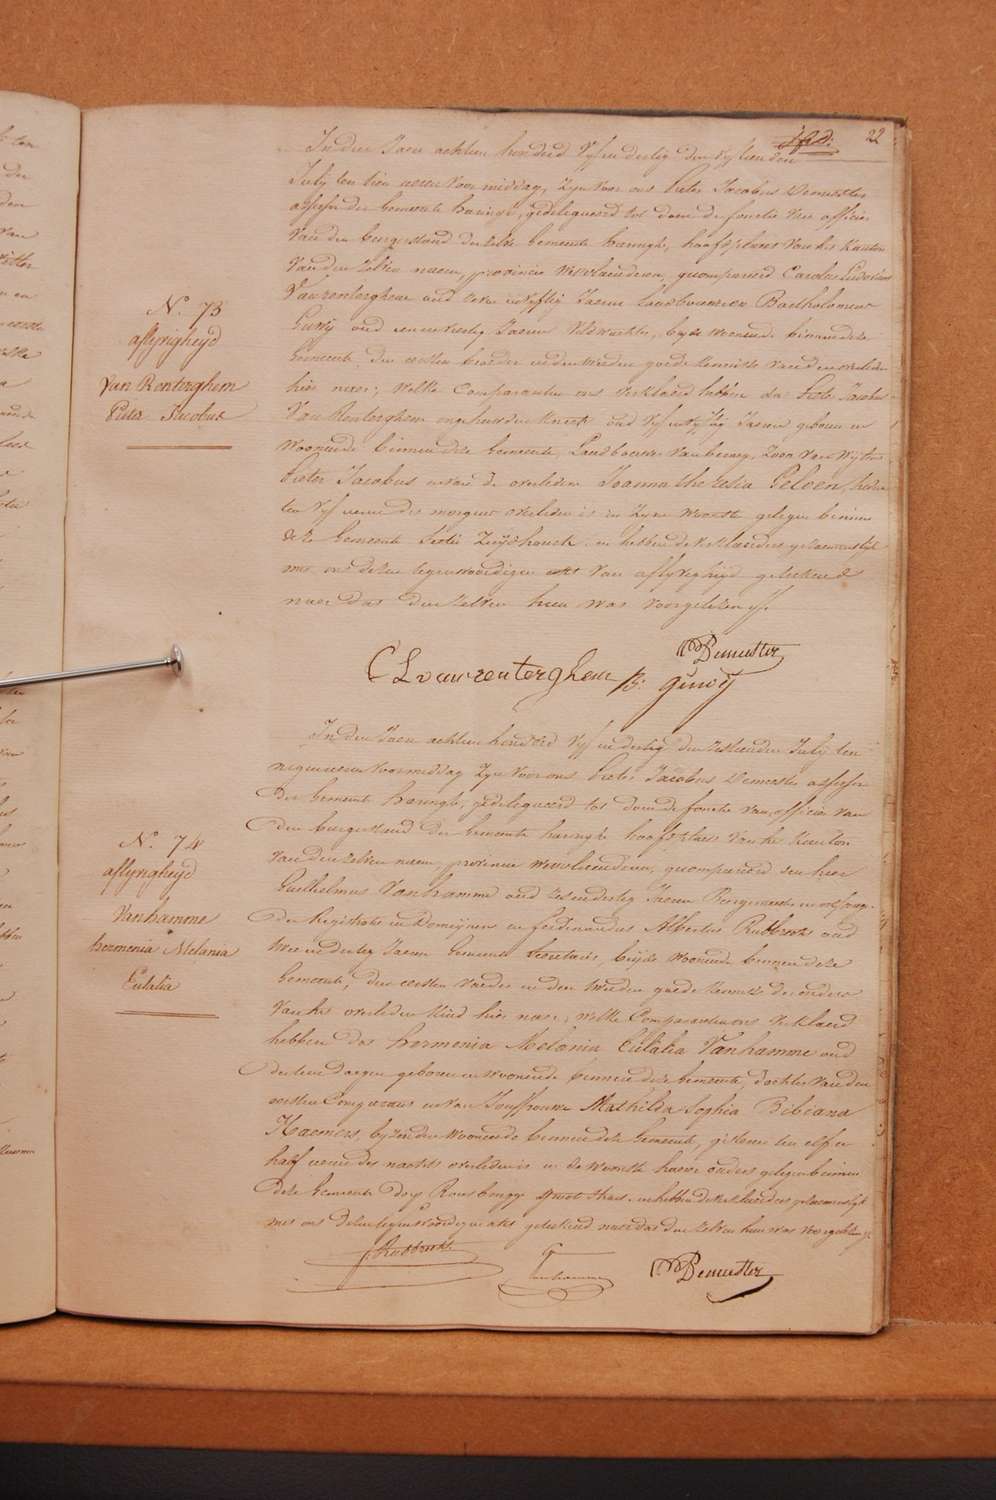 22
In den Jaere achttien honderd vyf en dertig den vyftienden
July ten tien uren voormiddag, Zyn voor ons Pieter Jacobus Demeester
assessor der Gemeente haringe, gedelegueerd tot doen de fonctie van officier
van den burgerstand der zelve Gemeente haringhe, hoofdplaets van het Kanton
van den zelven naem, provincie Westvlaenderen, gecompareerd Carolus Ludovicus
Vanrenterghem oud Jaeren Landbouwer en Bartholomeus
oud een en veertig Jaeren Veldwachter, beyde woonende binnen deze
Gemeente, den eersten broeder en den tweeden goede kennisse van den overleden
hier naer; welke Comparanten ons verklaerd hebben dat Pieter Jacobus
Van Renterghem ongehuwden knecht oud vyf en vyftig Jaeren geboren en
woonende binnen deze Gemeente, Landbouwer van beroep, Zoon van wylen
Pieter Jacobus en van de overledene Joanna Theresia Geloen, heden
ten vyf uren des morgens overleden is in Zyne woonste gelegen binnen
deze Gemeente Sectie en hebben de verklaerders gezaementlyk
met ons dezen tegenwoordigen akt van aflyvigheyd geteekend
naer dat den zelven hun was voorgelezen
N. 73
aflyvigheyd
Van Renterghem
Pieter Jacobus
PJ Demeester
C L vanrenterghem B:
In den Jaere achttien honderd vyf en dertig den zestienden July ten
negen uren voormiddag Zyn voor ons Pieter Jacobus Demeester assessor
der Gemeente haringhe, gedelegueerd tot doen de fonctie van officier van
den burgerstand der Gemeente haringhe hoofdplaets van het Kanton
van den zelven naem, provincie Westvlaenderen, gecompareerd den heer
Guilhelmus Vanhamme oud zes en dertig Jaeren en ontfang-
der Registratie en Domeynen en Ferdinandus Albertus Rubbrecht oud
twee en dertig Jaeren Gemeente Secretaris, beyde woonende binnen deze
Gemeente, den eersten vader en den tweeden goede kennisse der ouders
van het overleden kind hier naer; welke Comparanten ons verklaerd
hebben dat hermenia Melania Eulalia Vanhamme oud
dertien dagen geboren en woonende binnen deze Gemeente, dochter van den
eersten Comparant en van Jouffrouwe Mathilda Sophia Bibiana
Haemers, by zynde woonende binnen deze Gemeente, gisteren ten elf en
half uren des nachts overleden is in de woonste haere ouders gelegen binnen
deze Gemeente dorp Rousbrugge groot straet en hebben de verklaerders gezaementlyk
met ons dezen tegenwoordigen akt geteekend naer dat den zelven hun was voorgelezen
N. 74
aflyvigheyd
Vanhamme
hermenia Melania
Eulalia
F Rubbrecht
G vanhamme
PJ Demeester